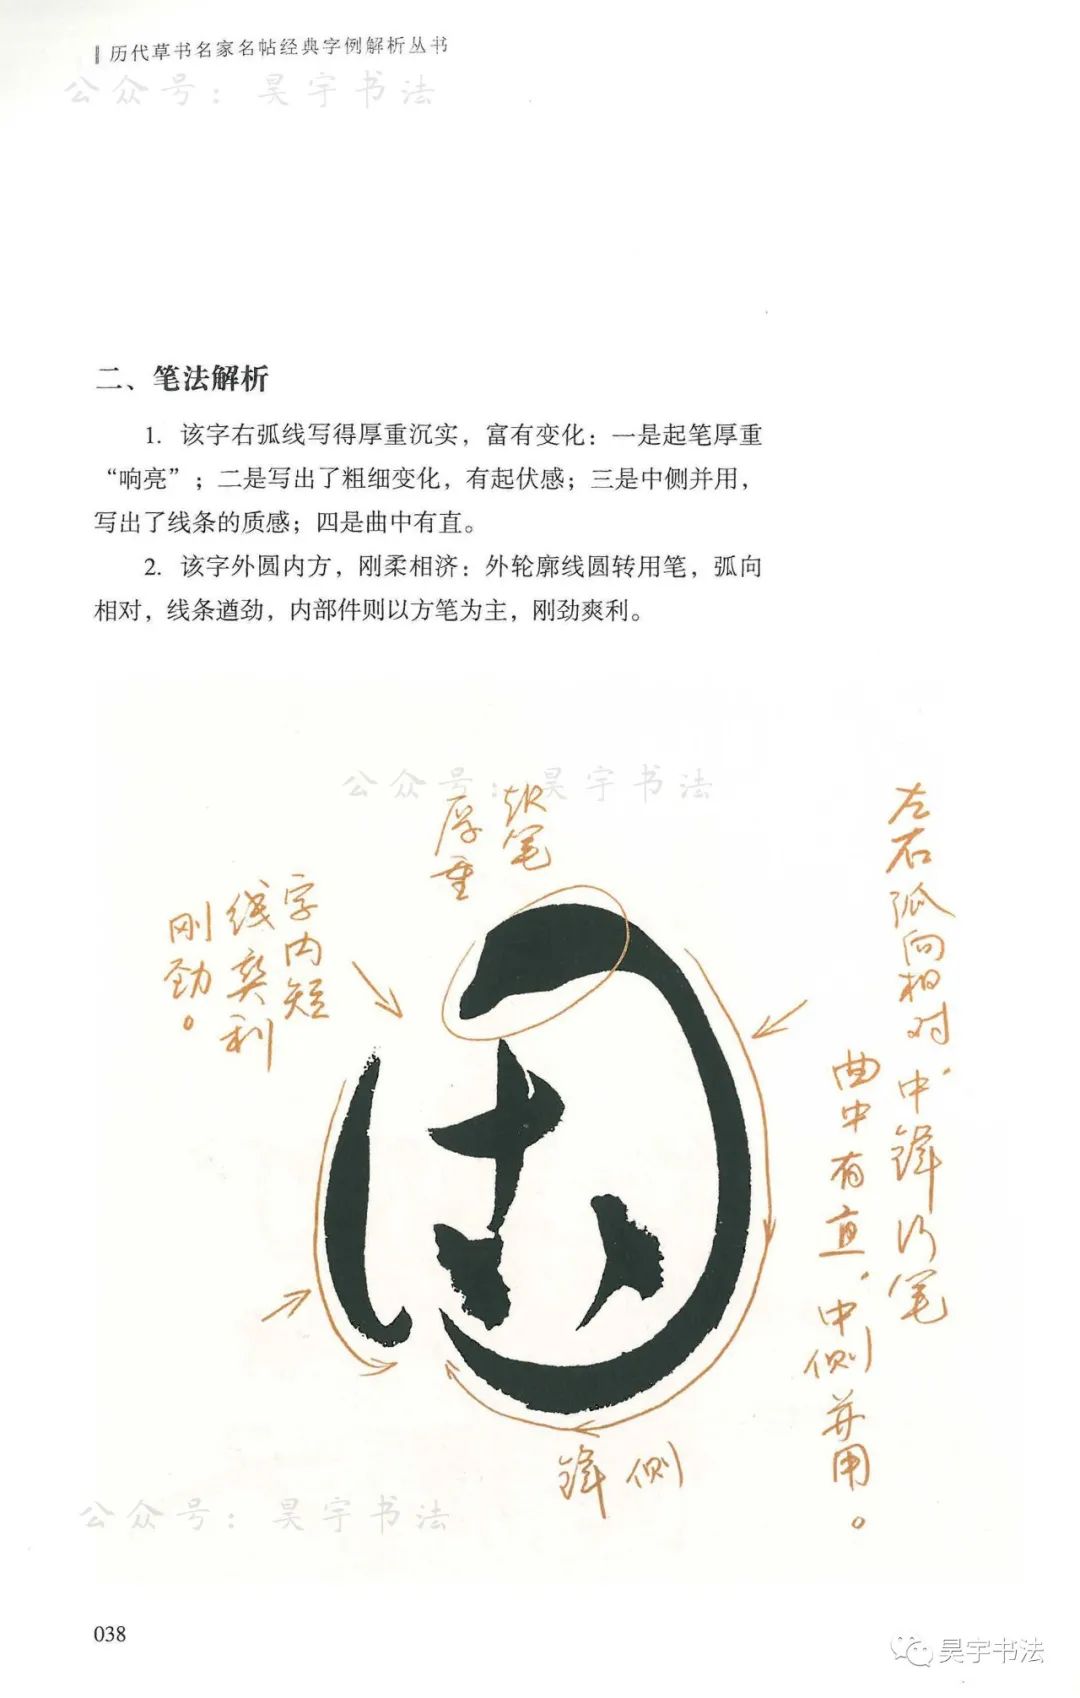 历代草书名家名帖经典字例解析丛书
公众号：昊宇书法
二、笔法解析
1. 该字右弧线写得厚重沉实，富有变化：一是起笔厚重
“响亮”；二是写出了粗细变化，有起伏感；三是中侧并用，
写出了线条的质感；四是曲中有直。
2. 该字外圆内方，刚柔相济：外轮廓线圆转用笔，弧向
相对，线条遒劲，内部件则以方笔为主，刚劲爽利。
公众号：昊宇书法
起笔
厚重
左右弧向相对，中锋行笔
曲中有直，中侧并用。
字内短
线爽利
刚劲。
侧锋
公众号：昊宇书法
038
昊宇书法